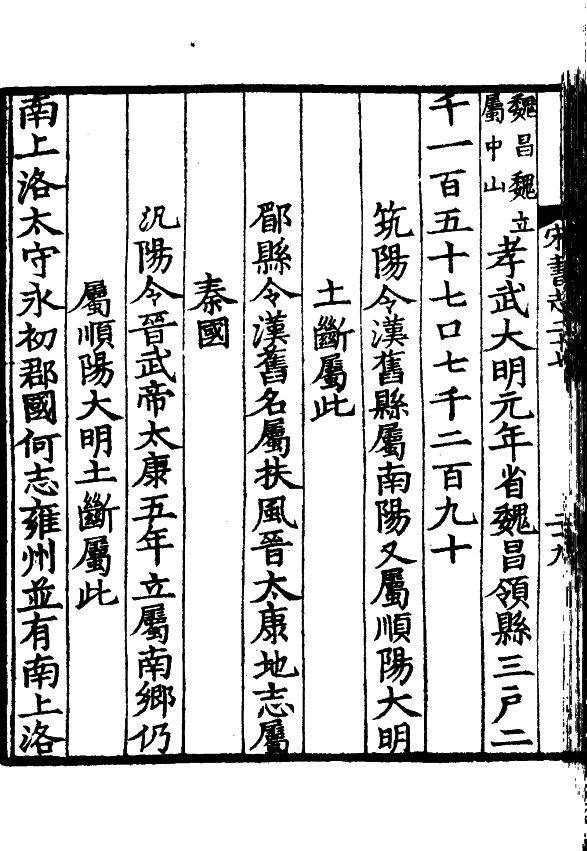 宋書志二十七
二十九
魏昌魏立
屬中山
孝武大明元年省魏昌領縣三戶二
千一百五十七口七千二百九十
筑陽令漢舊縣屬南陽又屬順陽大明
土斷屬此
郿縣令漢舊名屬扶風晉太康地志屬
秦國
汎陽令晉武帝太康五年立屬南鄉仍
屬順陽大明土斷屬此
南上洛太守永初郡國何志雍州並有南上洛